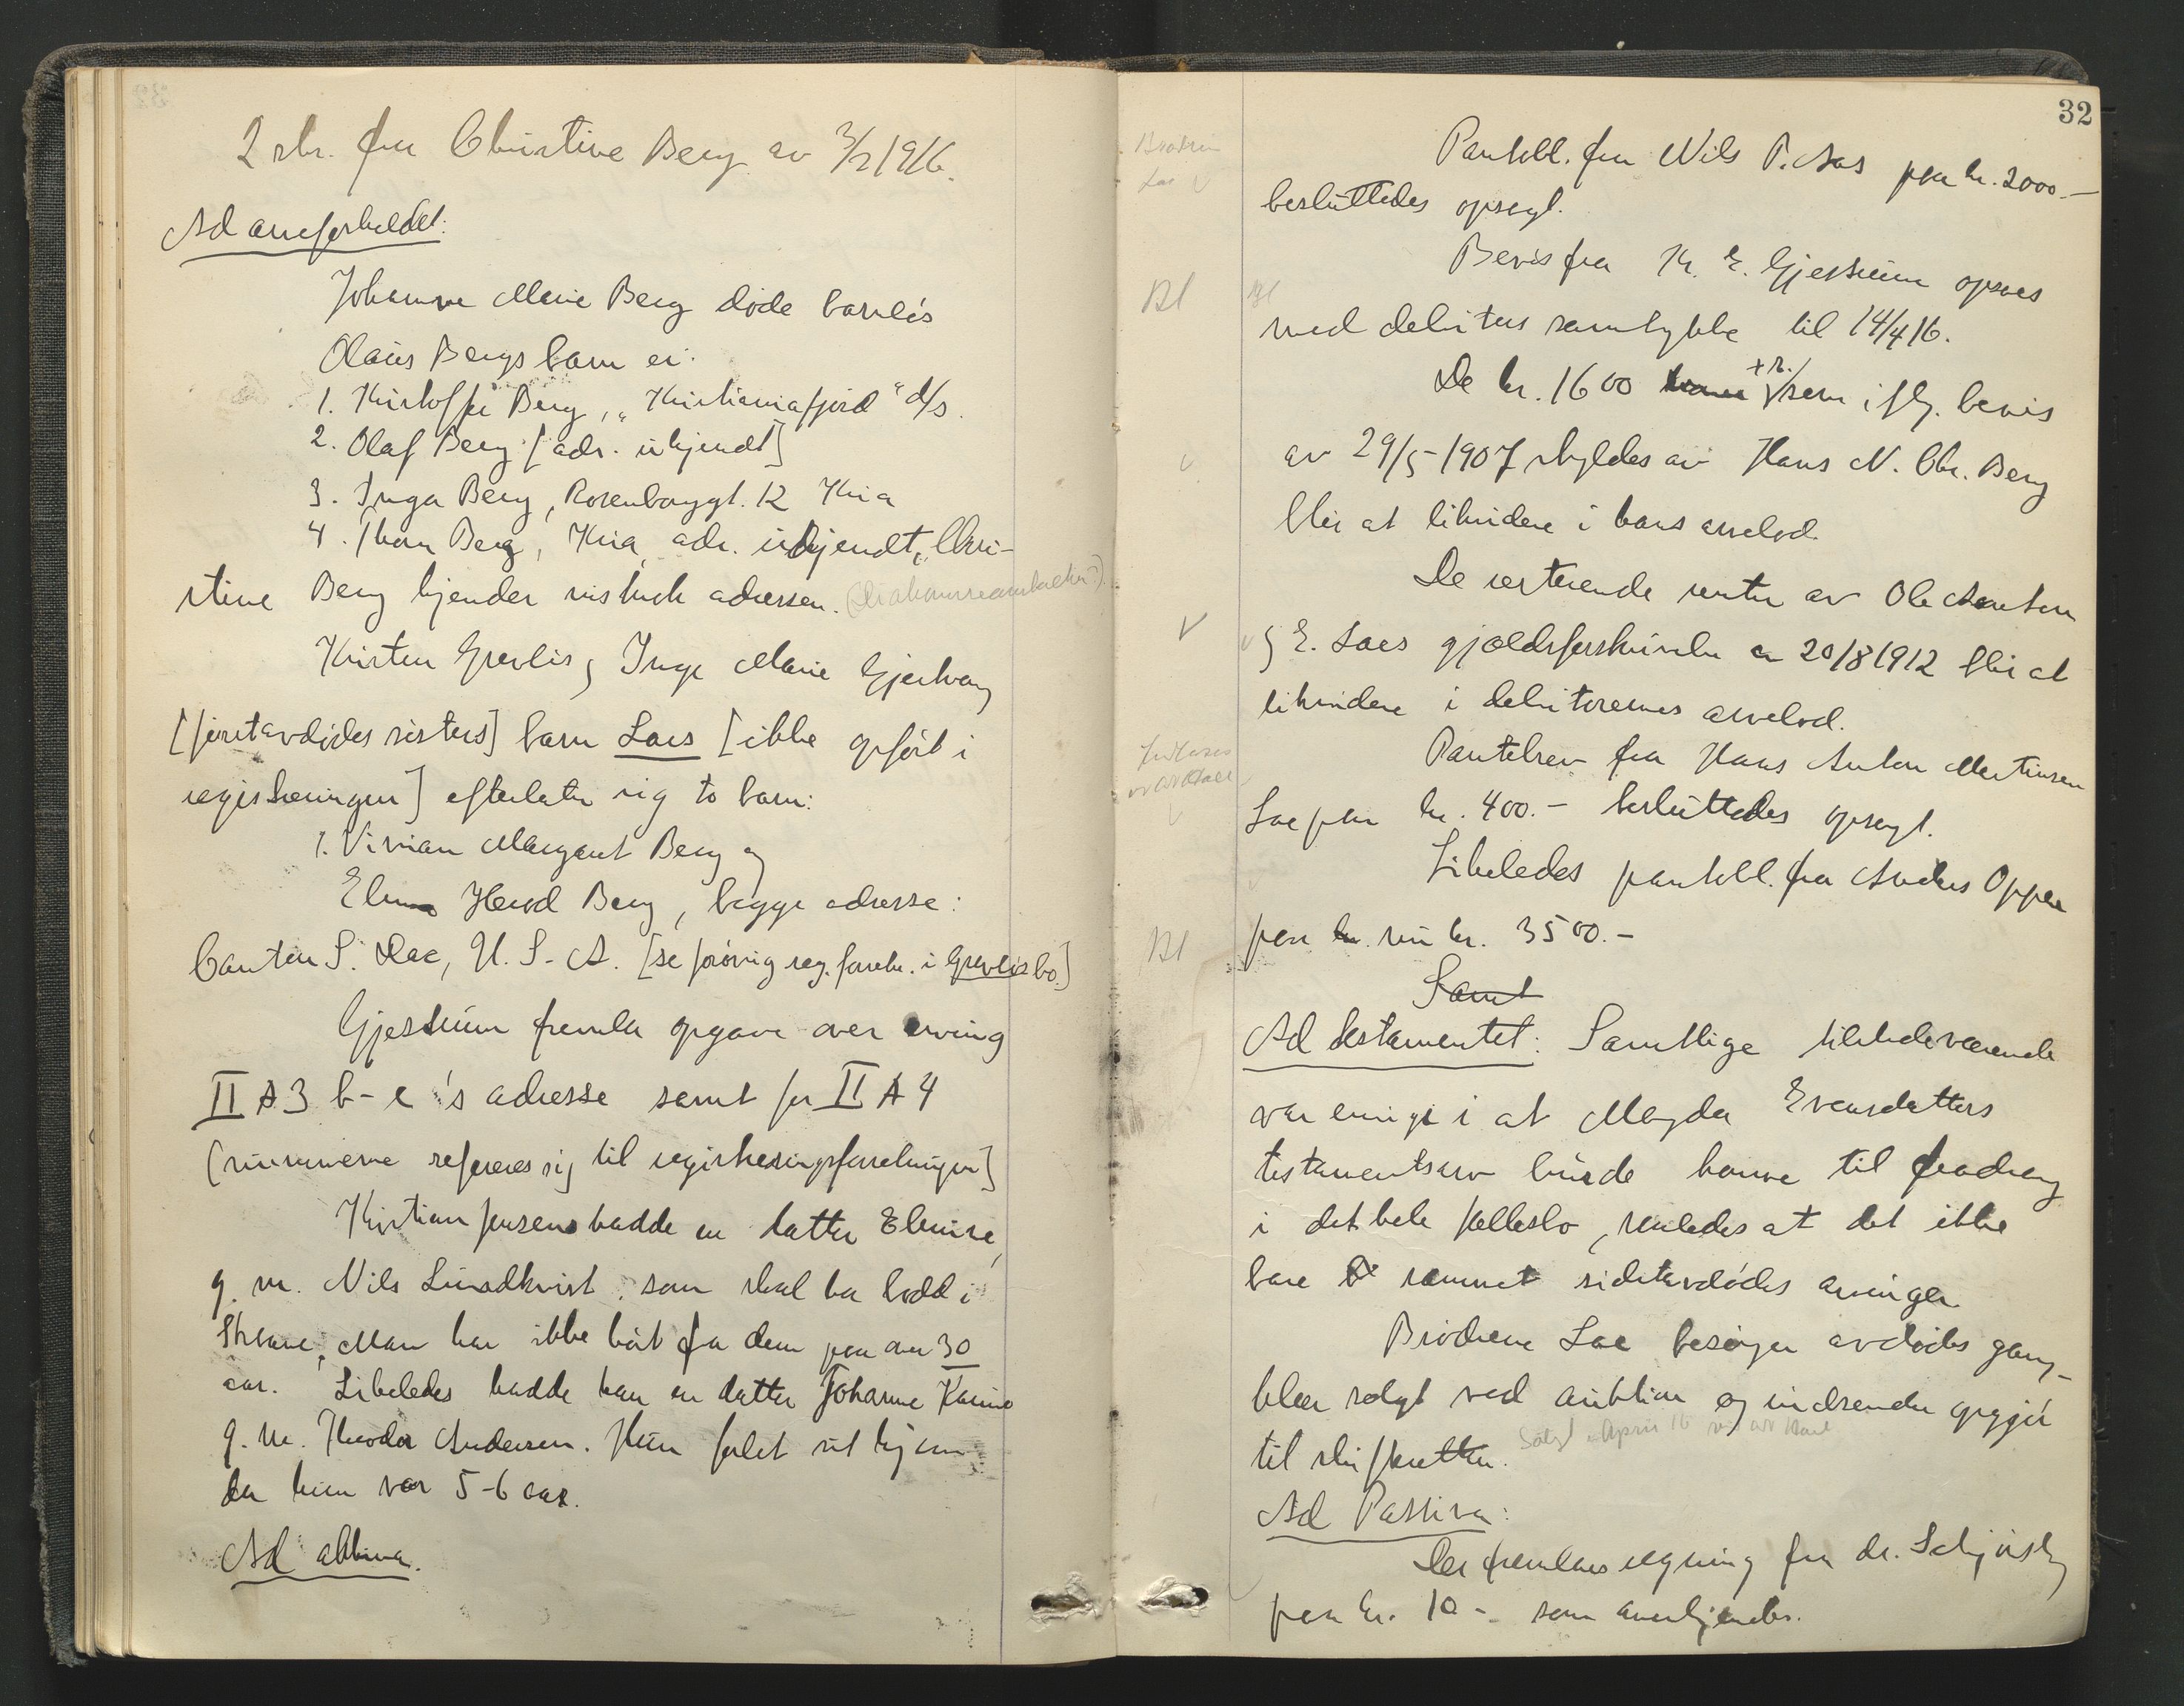 2 skr. fra Christine Berg av 3/2 1916.
Ad arveforholdet:
Johanne Marie Berg døde barnløs
Olaus Bergs barn er:
1. Kristoffer Berg, „Kristianiafjord“ d/s.
2. Olaf Berg [adr. ukjendt]
3. Inga Berg, Rosenborggt. 12 Kria
4. Thora Berg, Kria, adr. ukjendt, Chri-
stine Berg kjender mistnok adressen.
Kristen Grevlis og Inge Marie Gjerhaug
[førstavdødes søsters] barn Laes [ikke opført i
registreringen] efterlater sig to barn:
1. Vivian Margaret Berg og
Elmo Herod Berg, begge adresse:
Canton S. Dac, U. S. A. [se forøvrig reg. forretn. i Grevlis bo.]
Gjestrum fremla opgave over arving
II A 3 b-e's adresse samt for II A 4
(numrene referer sig til registreringsforretningen]
Kristian Jensen hadde en datter Elmire,
g. m. Nils Lundkvist, som skal ha bodd i
Skaane. Man har ikke hørt fra dem paa over 30
aar. Likeledes hadde han en datter Johanne Karine
g. m. Theodor Andersen. Hun forlot sit hjem
da hun var 5-6 aar.
Ad aktiva.
32
Brødrene
Lae V
Pantobl. fra Nils P. Aas paa kr. 2000.-
besluttedes opsagt.
Bl
Bevis fra Kr. E. Gjestrum opsaes
med debitors samtykke til 14/4 16.
De kr. 1600 + r. som iflg. bevis
av 29/5-1907 skyldes av Hans N. Chr. Berg
blir at likvidere i hans arvelod.
De resterende renter av Ole Anton
og E. Laes gjældsforskrivelse av 20/8 1912 blir at
likvidere i debitorernes arvelod.
Pantebrev fra Hans Anton Martinsen
Lae paa kr. 400.- besluttedes opsagt.
Likeledes pantobl. fra Anders Oppen
Bl
paa kr. nu kr. 3500.-
Samt
Ad testamentet: Samtlige tilstedeværende
var enige i at Magda Evensdatters
testamentsarv burde komme til fradrag
i det hele fællesbo, saaledes at det ikke
bare rammet sidstavdødes arvinger.
Brødrene Lae besørger avdødes gang-
klær solgt ved auktion og indsender opgjør
til skifteretten.
Ad Passiva:
Der fremlaes regning fra dr. Schjørsby
paa kr. 10.- som anerkjendes.